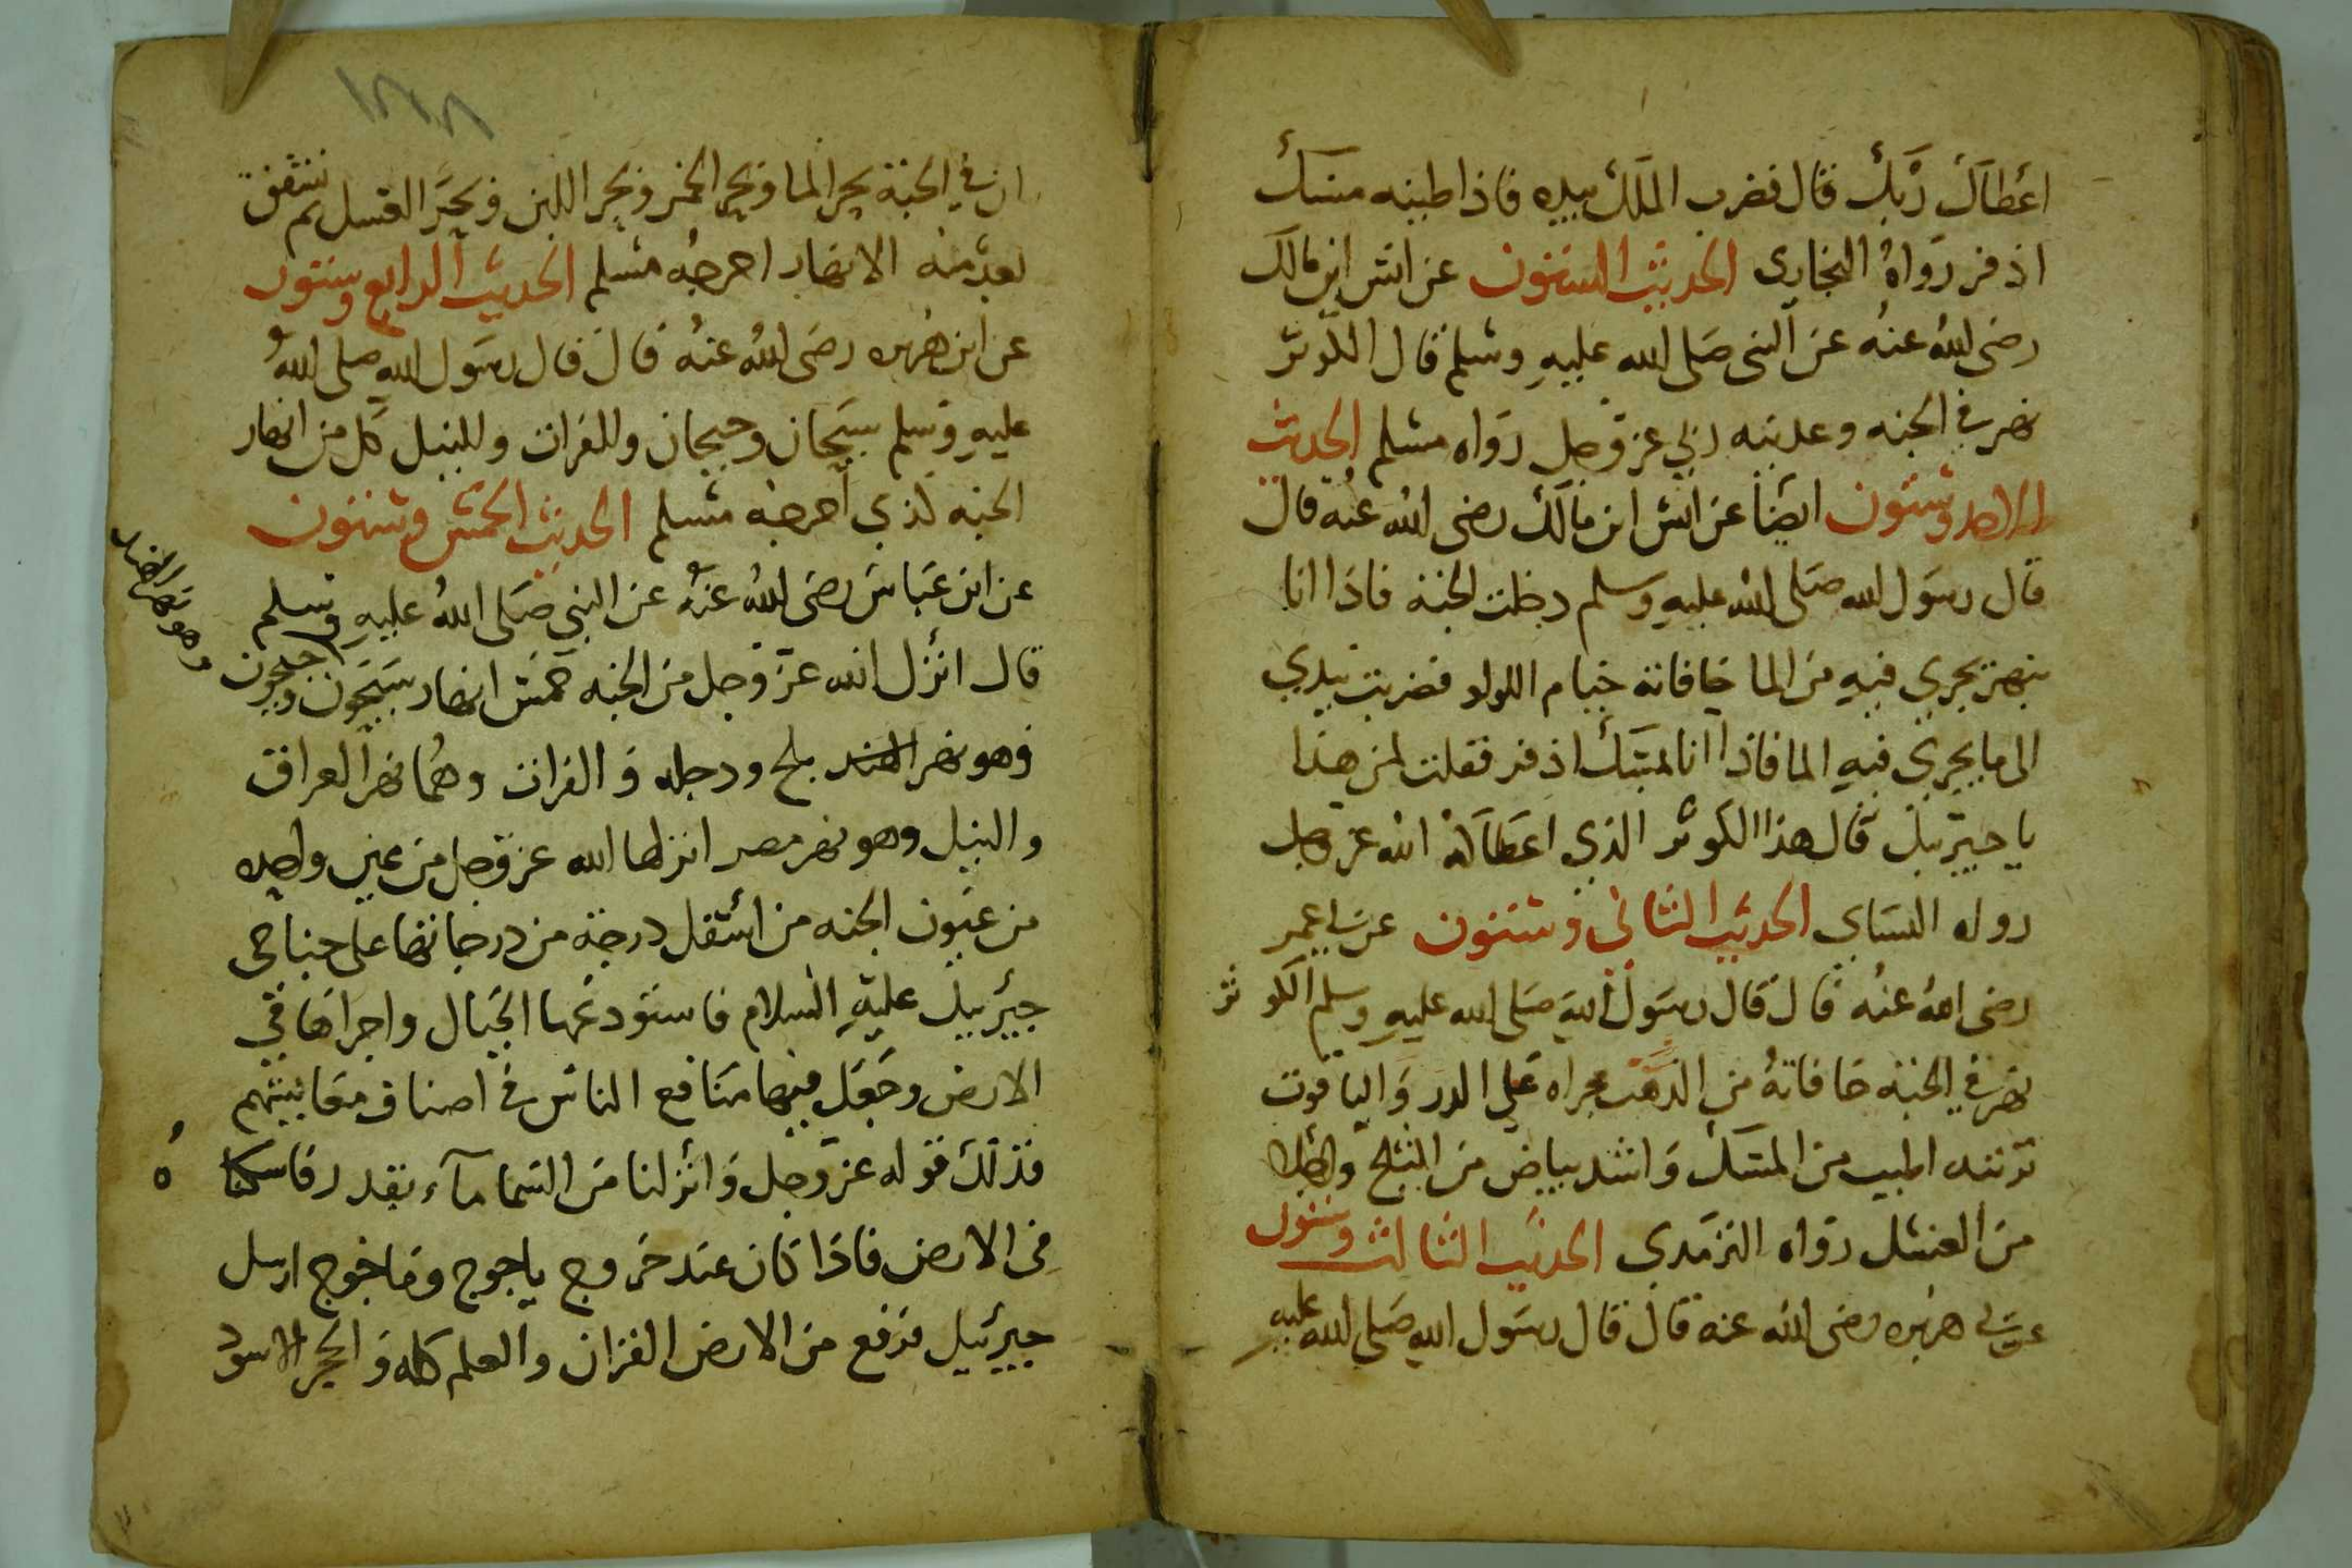 اعطاك ربك قال فضرب الملك بيده فاذا طينه مسك
اذفر رواه البخارى الحديث الستون عن انس ابن مالك
رضى الله عنه عن النبى صلى الله عليه وسلم قال الكوثر
نهر في الجنه وعدنيه ربي عز وجل رواه مسلم الحديث
الاحد وستون ايضا عن انس ابن مالك رضى الله عنه قال
قال رسول الله صلى الله عليه وسلم دخلت الجنة فاذا انا
بنهر يجري فيه من الما حافاته خيام اللولو فضربت بيدي
الى ما يجري فيه الما فاذا انا لمسك اذفر فقلت لمن هذا
يا جبرئيل قال هذا الكوثر الذي اعطاكه الله عز وجل
رواه النساي الحديث الثاني وستون عن ابي عمر
رضى الله عنه قال قال رسول الله صلى الله عليه وسلم الكوثر
نهر في الجنة حافاته من الذهب مجراه على الدر والياقوت
تربته اطيب من المسك واشد بياض من الثلج واحلا
من العسل رواه الترمدي الحديث الثالث وستون
عن ابي هريره رضى الله عنه قال قال رسول الله صلى الله عليه
ان في الجنة بحر الما وبحر الخمر وبحر اللبن وبحر العسل ثم تشقق
بعد منه الانهار اخرجه مسلم الحديث الرابع وستون
عن ابن هريره رضى الله عنه قال قال رسول الله صلى الله
عليه وسلم سيحان وجيحان وللفرات وللنيل كل من انهار
الجنه لذي اخرجه مسلم الحديث الخمس وستون
عن ابن عباس رضى الله عنه عن النبي صلى الله عليه وسلم
قال انزل الله عز وجل من الجنه خمس انهار سيحون وجيحون
وهو نهر الهند
وهو نهر بلخ ودجله و الفرات وهما نهر العراق
والنيل وهو نهر مصر انزلها الله عز وجل من عين واحده
من عيون الجنه من اسفل درجة من درجاتها على جناحى
جبرئيل عليه السلام فاستودعها الجبال واجراها في
الارض وجعل فيها منافع الناس في اصناف معايشهم
فذلك قوله عز وجل وانزلنا من السما مآء بقدر فاسكناه
في الارض فاذا كان عند خروج ياجوج وماجوج ارسل
جبرئيل فرفع من الارض القران والعلم كله و الحجر الاسود